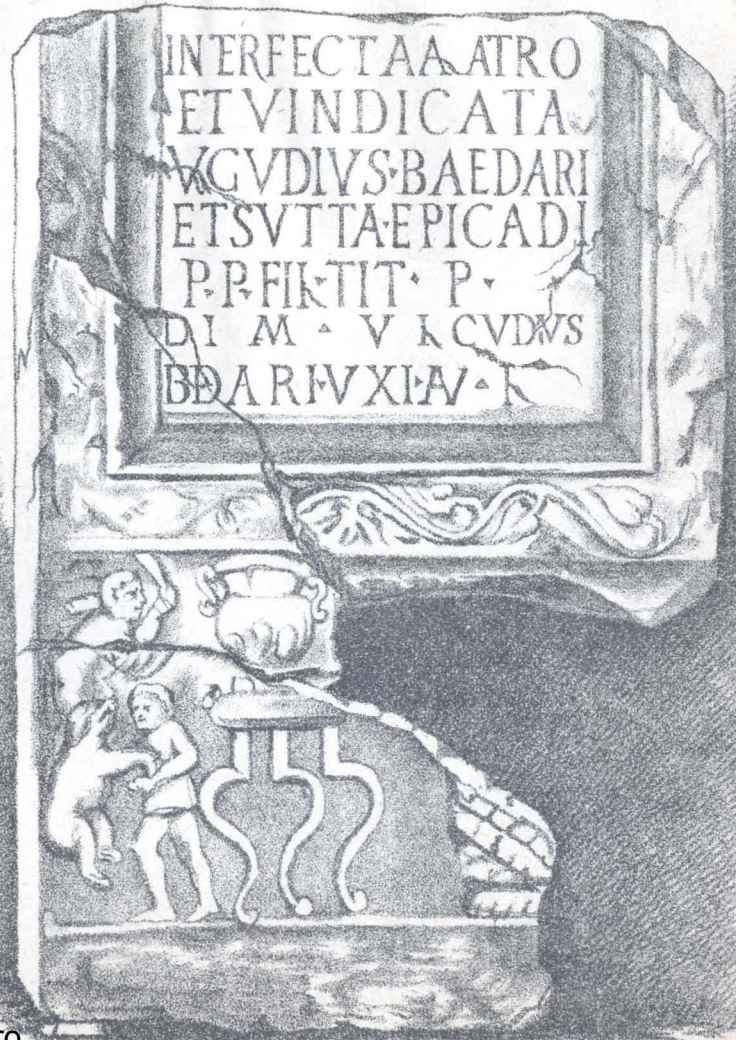 INTERFECTA A LATRO
ET VINDICATA
VLCVDIVS·BAEDARI
ET SVTTA·EPICADI
P·P·FIL·TIT· P·
DI M · V LCVDIVS
BDARI·VXI·AV·